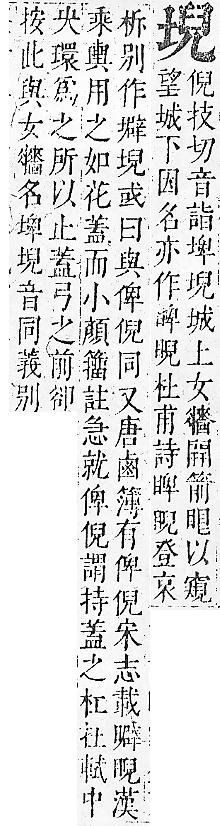 堄
倪技切音詣埤堄城上女牆開箭眼以窺
望城下因名亦作睥睨杜甫詩睥睨登哀
柝別作壀堄或曰與俾倪同又唐鹵簿有俾倪宋志載𤗏睨漢
乘輿用之如花蓋而小顏籀註急就俾倪謂持蓋之杠在軾中
央環爲之所以止蓋弓之前卻
按此與女牆名埤堄音同義別